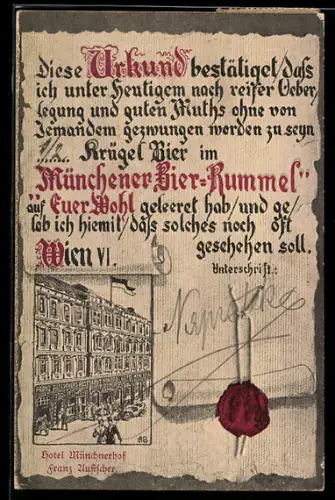 Diese Urkund bestätiget/daß
ich unter Heutigem nach reifer Ueber/
legung und guten Muths ohne von
Jemandem gezwungen worden zu seyn
1/2 Krügel Bier im
"Münchener Bier=Rummel"
auf Euer Wohl geleeret hab/und ge/
lob ich hiemit/daß solches noch oft
Wien VI. geschehen soll.
Unterschrift.:
Hotel Münchnerhof
Franz Aufischer.